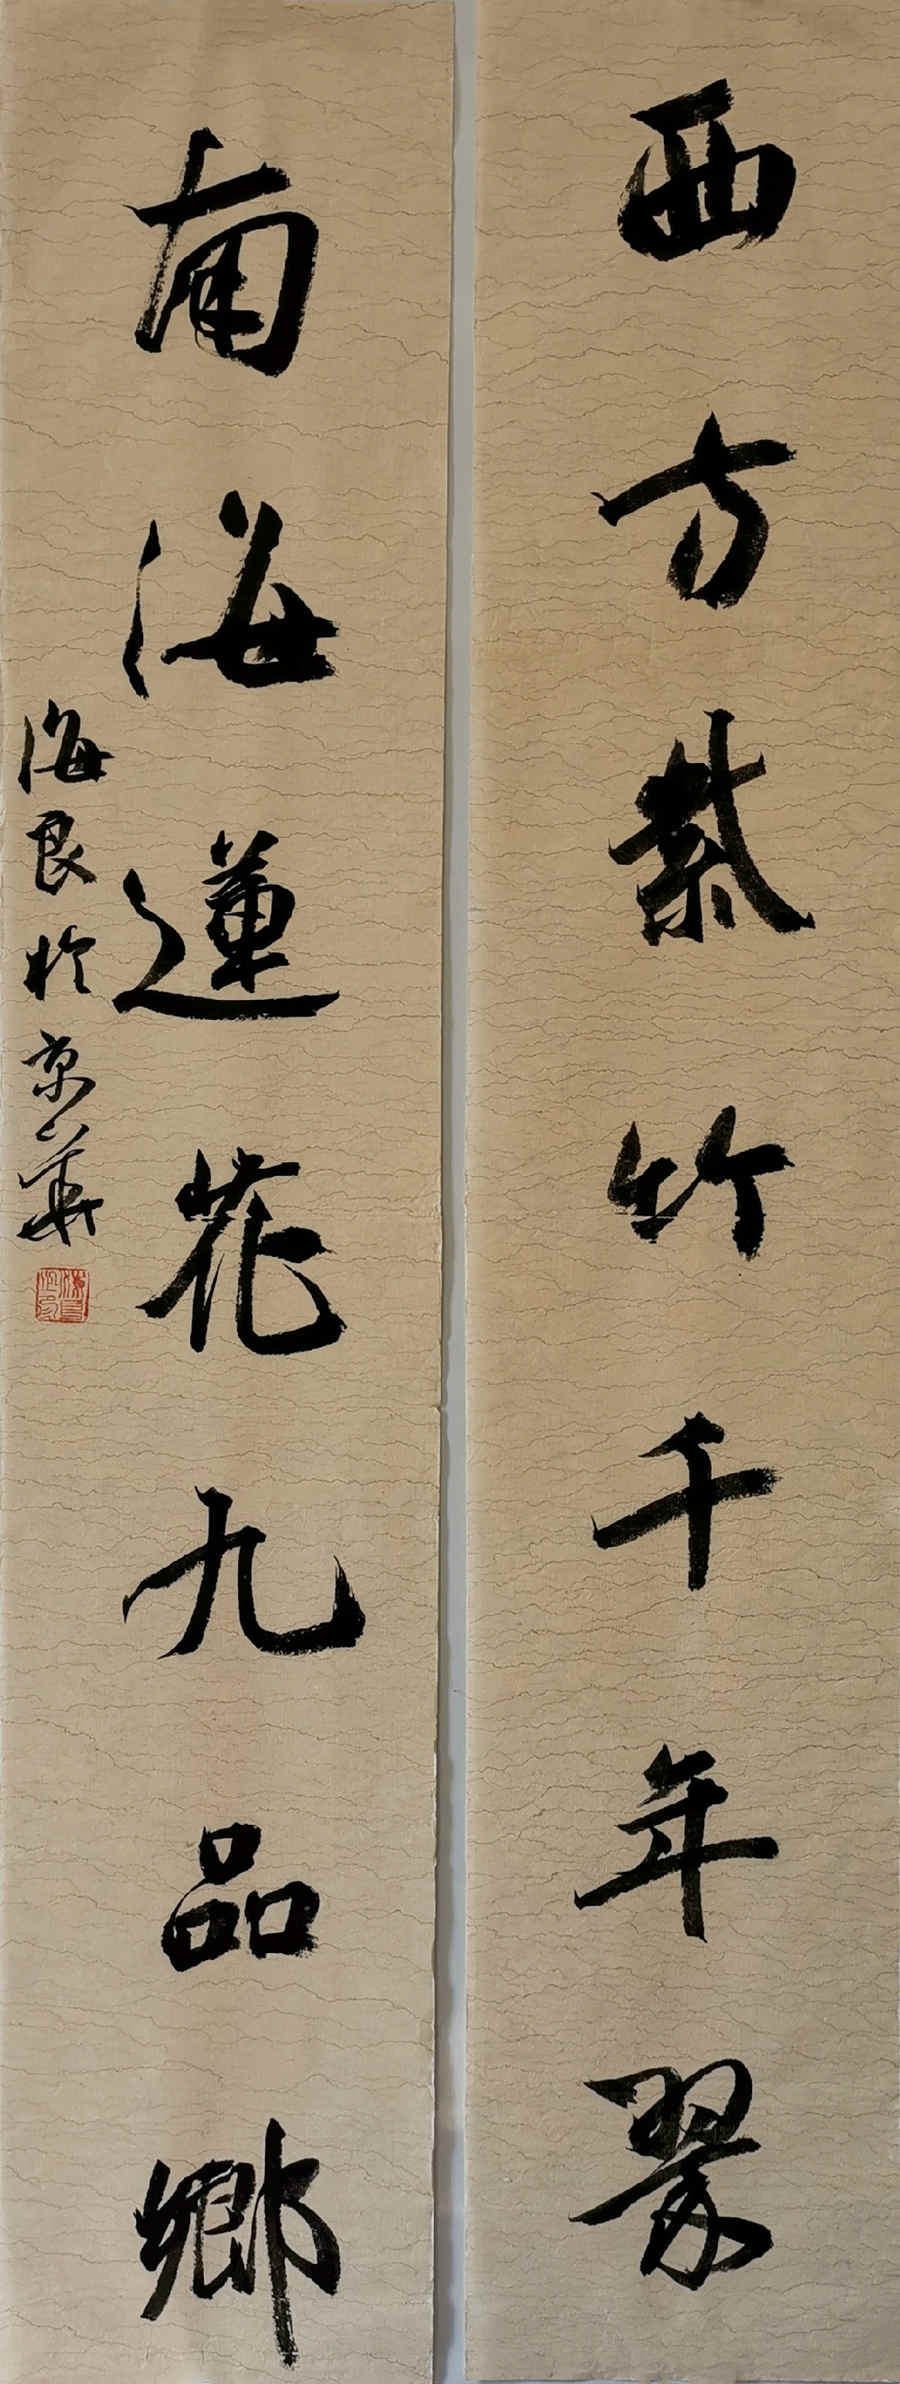 西方紫竹千年翠
南海蓮花九品鄉
海良於京華